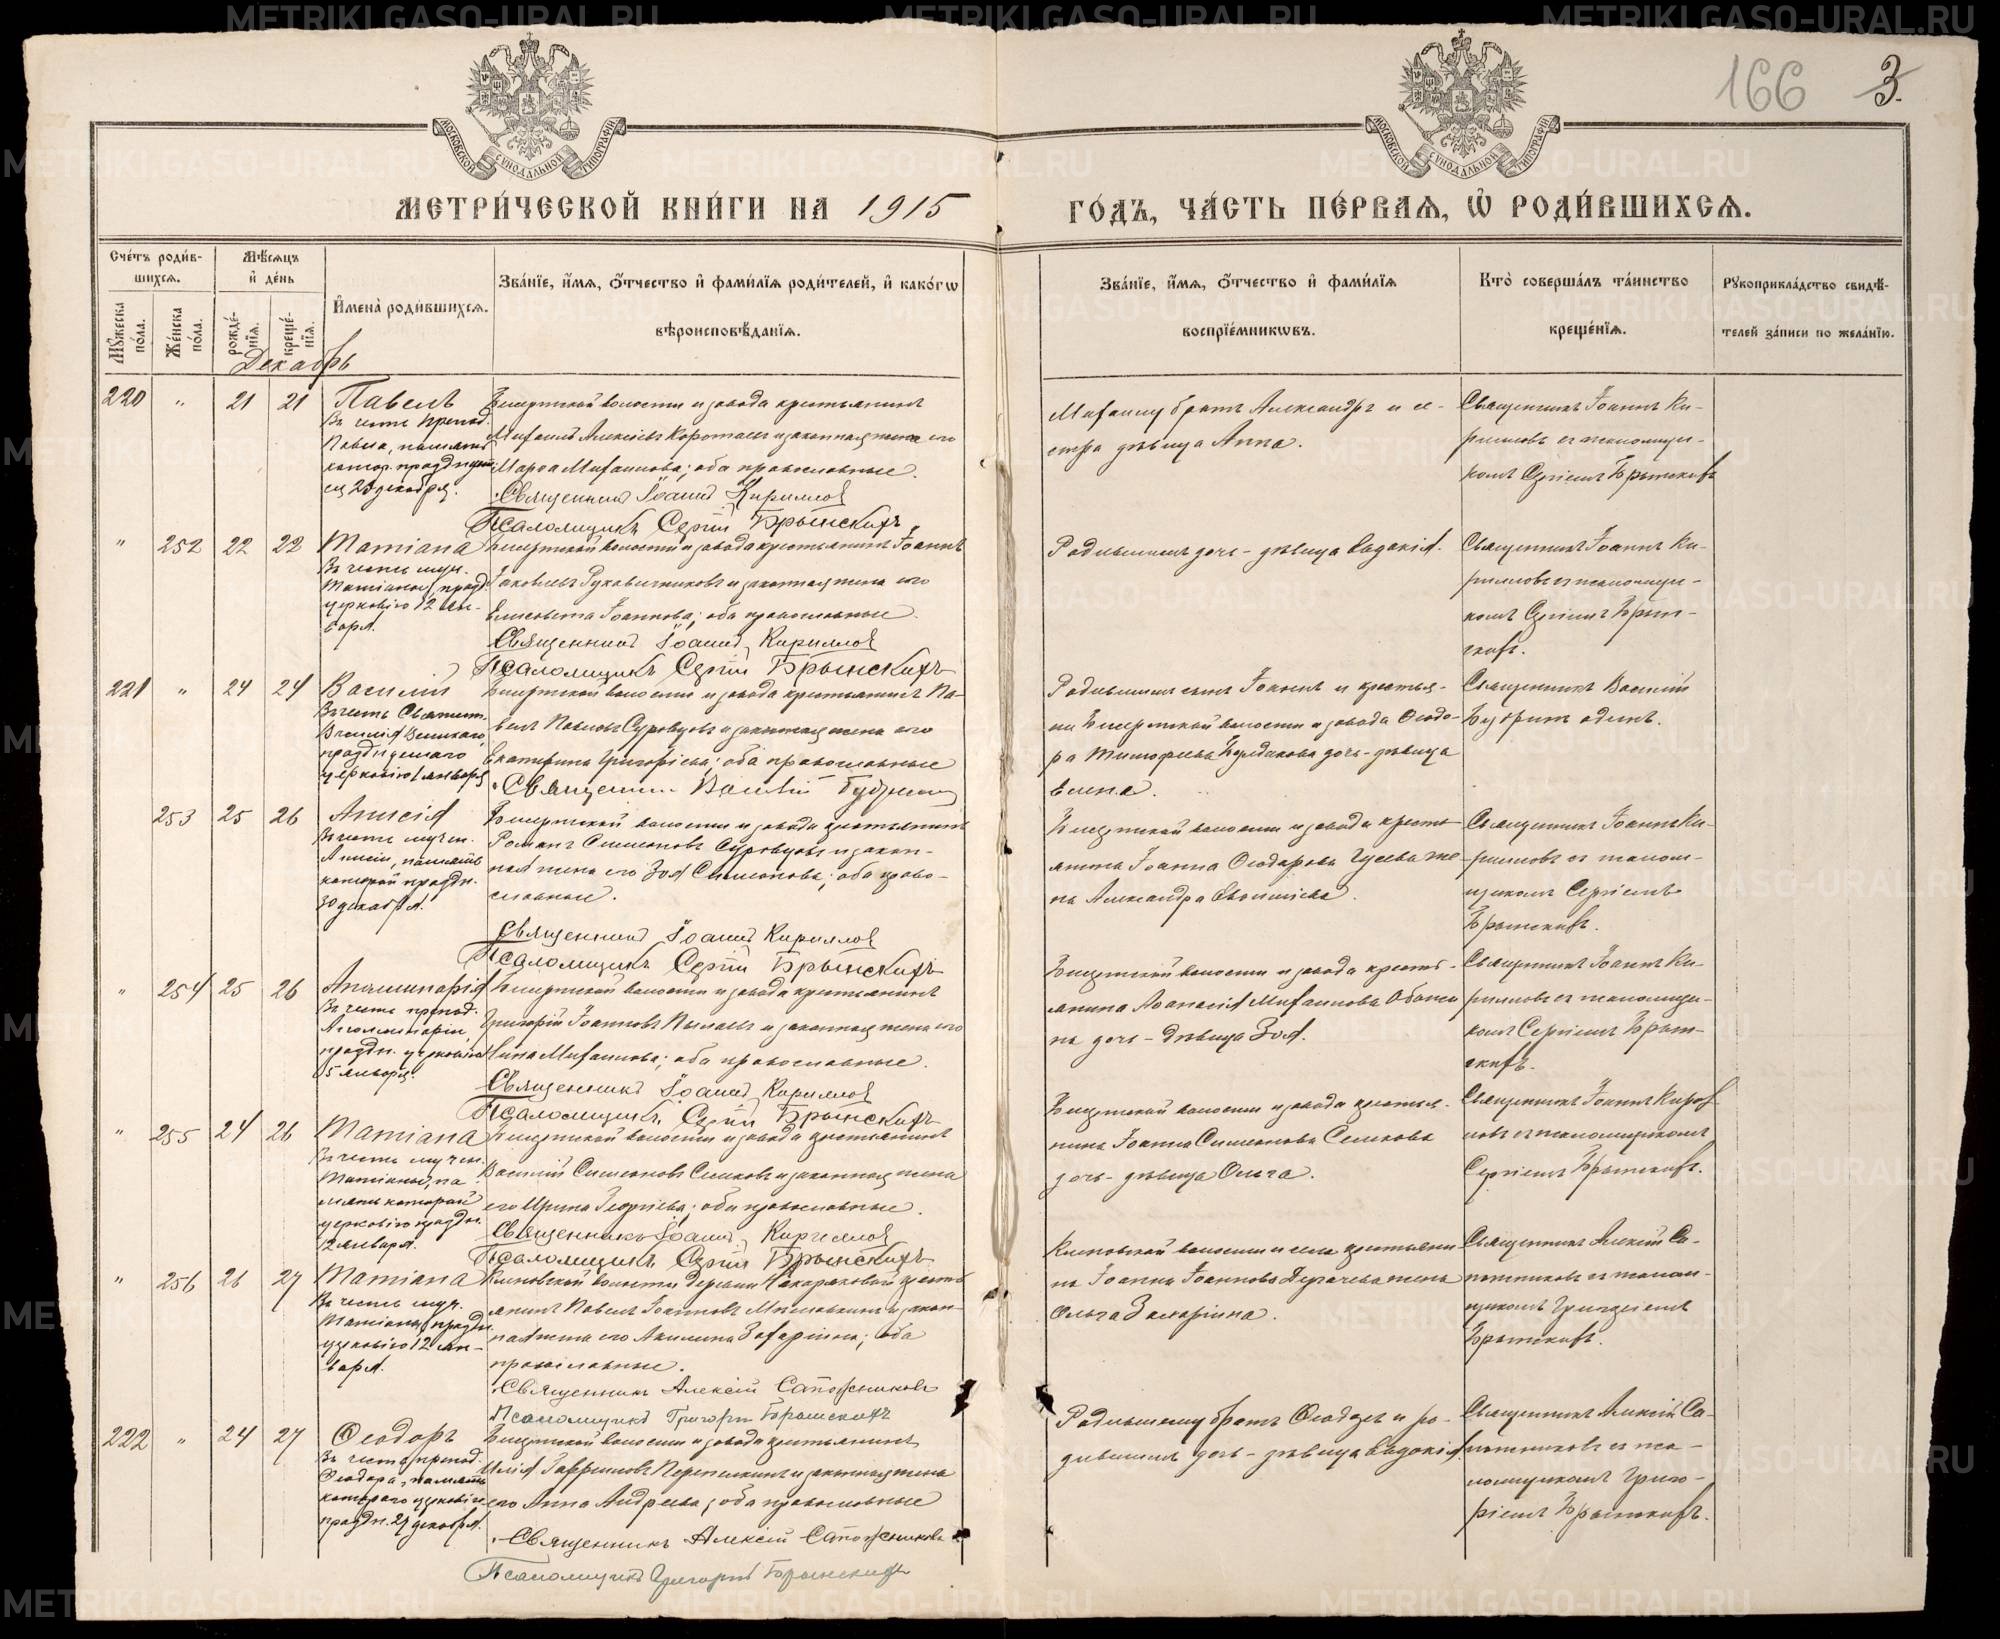 166 3.
МОСКОВСКОЙ СѴНОДАЛЬНОЙ ТИПОГРАФІИ
МОСКОВСКОЙ СѴНОДАЛЬНОЙ ТИПОГРАФІИ
МЕТРИ́ЧЕСКОЙ КНИ́ГИ НА 1915
ГО́ДЪ, ЧА́СТЬ ПЕ́РВАЯ, Ѡ РОДИ́ВШИХСЯ.
Сче́тъ роди́в-
шихся.
Мѣ́сяцъ
и де́нь
Му́жеска
по́ла.
Же́нска
по́ла.
рожде́-
нїя.
креще́-
нїя.
Имена̀ роди́вшихся.
Зва́нїе, и́мя, о́тчество и фами́лїя роди́телей, и како́гѡ
вѣроисповѣ́данїя.
Зва́нїе, и́мя, о́тчество и фами́лїя
воспрїе́мникѡвъ.
Кто̀ соверша́лъ та́инство
креще́нїя.
Рукоприкла́дство свидѣ́-
телей за́писи по жела́нїю.
Декабрь
220 " 21 21 Павелъ
Въ честь препод.
Павла, память
котор. празднует-
ся декабря.
волости и завода крестьянинъ
Михаилъ Алексѣевъ Коротаевъ и законная жена его
Марѳа Михаилова; оба православные.
Священникъ Іоаннъ Кириллов
Псаломщикъ Сергій Брынскихъ
Михаилу братъ Александръ и се-
стра дѣвица Анна.
Священникъ Іоаннъ Ки-
рилловъ съ псаломщи-
комъ Сергіемъ Брынскихъ
" 252 22 22 Татіана
Въ честь муч.
Татіаны, празд.
церковію 12 ян-
варя.
волости и завода крестьянинъ Іоаннъ
Іаковлевъ Рукавичниковъ и законная жена его
Елисавета Іоаннова; оба православные.
Священникъ Іоаннъ Кириллов
Псаломщикъ Сергій Брынскихъ
Родившимся дочь - дѣвица Евдокія.
Священникъ Іоаннъ Ки-
рилловъ съ псаломщи-
комъ Сергіемъ Брын-
скихъ.
221 " 24 24 Василій
Въ честь Святит.
Василія Великаго,
празднуемаго
церковію 1 января
волости и завода крестьянинъ Па-
велъ Павловъ Суровцовъ и законная жена его
Екатерина Григоріева; оба православные
Священник Василій
Родившимся сынъ Іоаннъ и крестья-
ни волости и завода Ѳеодо-
ра Тимоѳеева дочь - дѣвица
Елена.
Священникъ Василій
одинъ.
253 25 26 Анисія
Въ честь мучен.
Анисіи, память
которой праздн.
30 декабря.
волости и завода крестьянинъ
Романъ Симеоновъ Суровцовъ и закон-
ная жена его Зоя Симеонова; оба право-
славные.
Священникъ Іоаннъ Кириллов
Псаломщикъ Сергій Брынскихъ
волости и завода кресть-
янина Іоанна Ѳеодорова Гусева же-
на Александра
Священникъ Іоаннъ Ки-
рилловъ съ псалом-
щикомъ Сергіемъ
Брынскихъ.
" 254 25 26 Аполлинарія
Въ честь препод.
Аполлинаріи,
праздн. церковію
5 января.
волости и завода крестьянинъ
Григорій Іоанновъ и законная жена его
Нина Михаилова; оба православные.
Священникъ Іоаннъ Кириллов
Псаломщикъ Сергій Брынскихъ
волости и завода кресть-
янина Аѳанасія Михаилова
на дочь - дѣвица Зоя.
Священникъ Іоаннъ Ки-
рилловъ съ псаломщи-
комъ Сергіемъ Брын-
скихъ.
" 255 24 26 Татіана
Въ честь мучен.
Татіаны, па-
мять которой
церковію праздн.
12 января.
волости и завода крестьянинъ
Василій Симеоновъ Селиковъ и законная жена
его Ирина Георгіева; оба православные.
Священникъ Іоаннъ Кириллов
Псаломщикъ Сергій Брынскихъ
волости и завода крестья-
нина Іоанна Симеонова Селикова
дочь - дѣвица Ольга.
Священникъ Іоаннъ Кирил-
ловъ съ псаломщикомъ
Сергіемъ Брынскихъ.
" 256 26 27 Татіана
Въ честь муч.
Татіаны, праздн.
церковію 12 ян-
варя.
Кыновской волости деревни кресть-
янинъ Павелъ Іоанновъ и закон-
ная жена его Акилина Захаріина; оба
православные.
Священникъ Алексій Сапожниковъ
Псаломщикъ Григорій Брынскихъ
Кыновской волости и села крестьяни-
на Іоанна Іоаннова жена
Ольга Захаріина.
Священникъ Алексій Са-
пожниковъ съ псалом-
щикомъ Григоріемъ
Брынскихъ.
222 " 24 27 Ѳеодоръ
Въ честь препод.
Ѳеодора, память
котораго церковію
праздн. 27 декабря.
волости и завода крестьянинъ
Илія и законная жена
его Анна Андреева; оба православные
Священникъ Алексій Сапожниковъ
Псаломщикъ Григорій Брынскихъ
Родившему братъ Ѳеодоръ и ро-
дившимся дочь - дѣвица Евдокія.
Священникъ Алексій Са-
пожниковъ съ пса-
ломщикомъ Григо-
ріемъ Брынскихъ.
METRIKI.GASO-URAL.RU